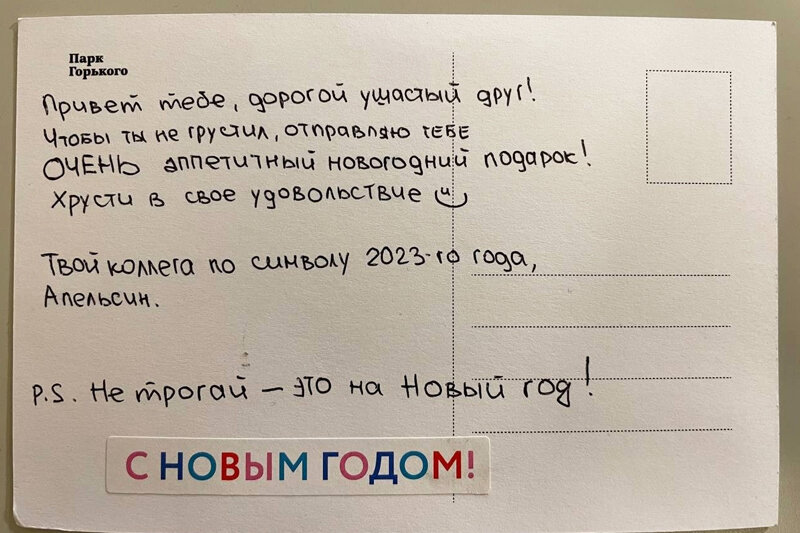 Парк
Горького
Привет тебе, дорогой ушастый друг!
Чтобы ты не грустил, отправляю тебе
ОЧЕНЬ аппетитный новогодний подарок!
Хрусти в свое удовольствие
Твой коллега по символу 2023-го года,
Апельсин.
P.S. Не трогай — это на Новый год!
С НОВЫМ ГОДОМ!